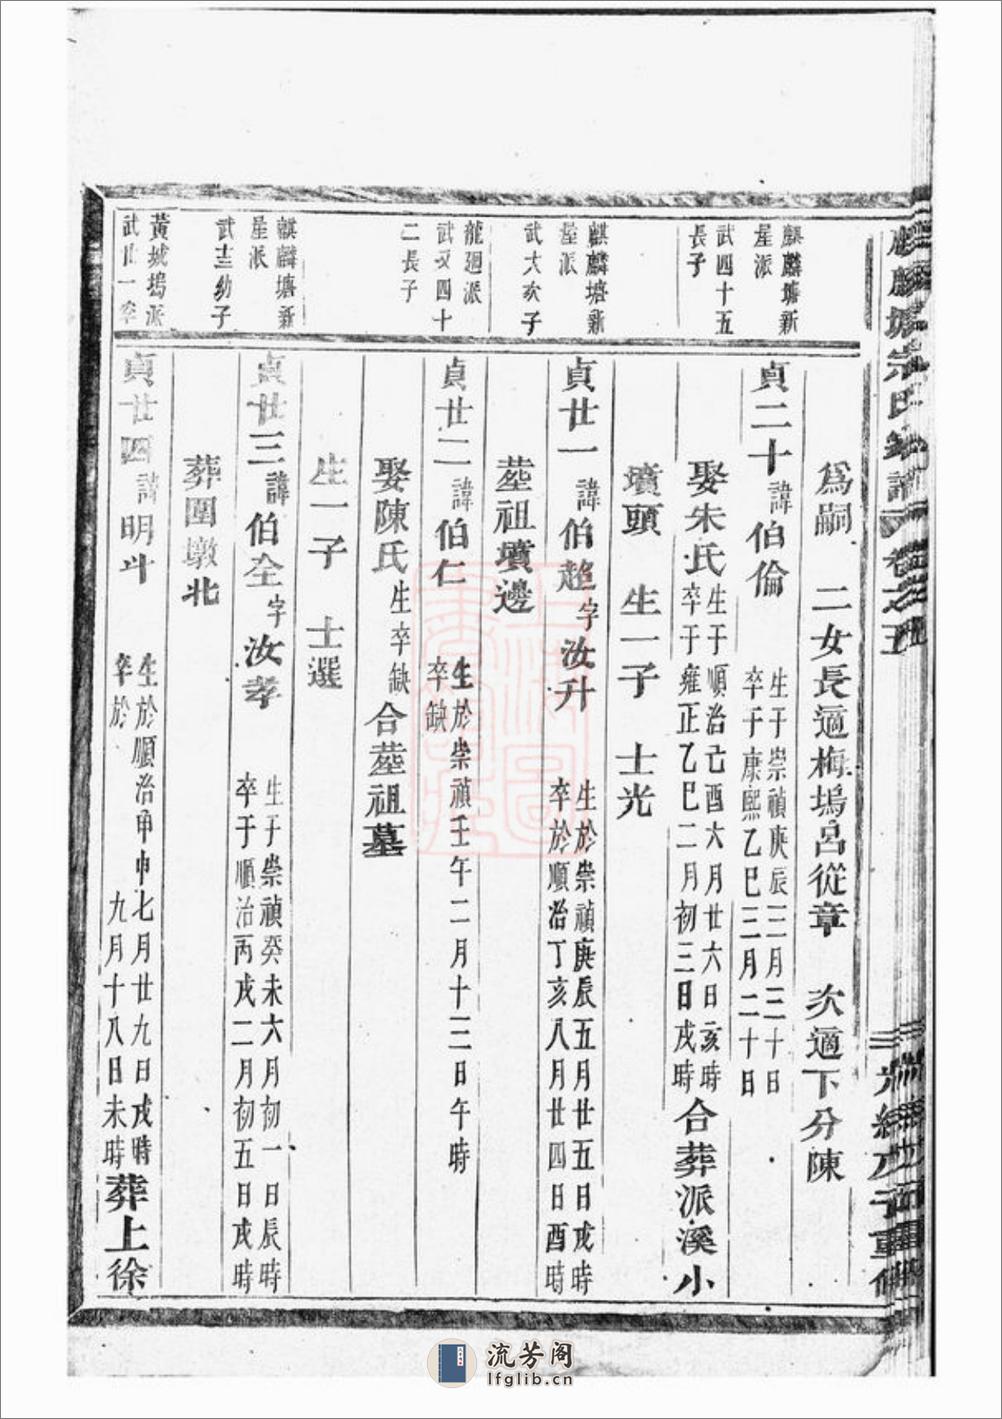 麒麟塘宗氏家譜 卷之五
光緒庚子重修
爲嗣 二女長適梅塢呂從章 次適下分陳
麒麟塘新
屋派
武四十五
長子
貞二十諱伯倫
生于崇禎庚辰三月三十日
卒于康熙乙巳三月二十日
娶朱氏
生于順治己酉六月廿六日亥時
卒于雍正乙巳二月初三日戌時
合葬派溪小
墳頭 生一子 士光
麒麟塘新
屋派
武大次子
貞廿一諱伯趋字汝升
生於崇禎庚辰五月廿五日戌時
卒於順治丁亥八月廿四日酉時
塟祖墳邊
龍廻派
武四十
二長子
貞廿二諱伯仁
生於崇禎壬午二月十三日午時
卒缺
娶陳氏
生卒缺
合塟祖墓
生一子 士選
麒麟塘新
屋派
武幼子
貞廿三諱伯全字汝孝
生于崇禎癸未六月初一日辰時
卒于順治丙戌二月初五日戌時
葬圍墩北
黃城塢派
武廿一
貞廿四諱明斗
生於順治甲申七月廿九日戌時
卒於 九月十八日未時
葬上徐
流芳阁
lfglib.cn